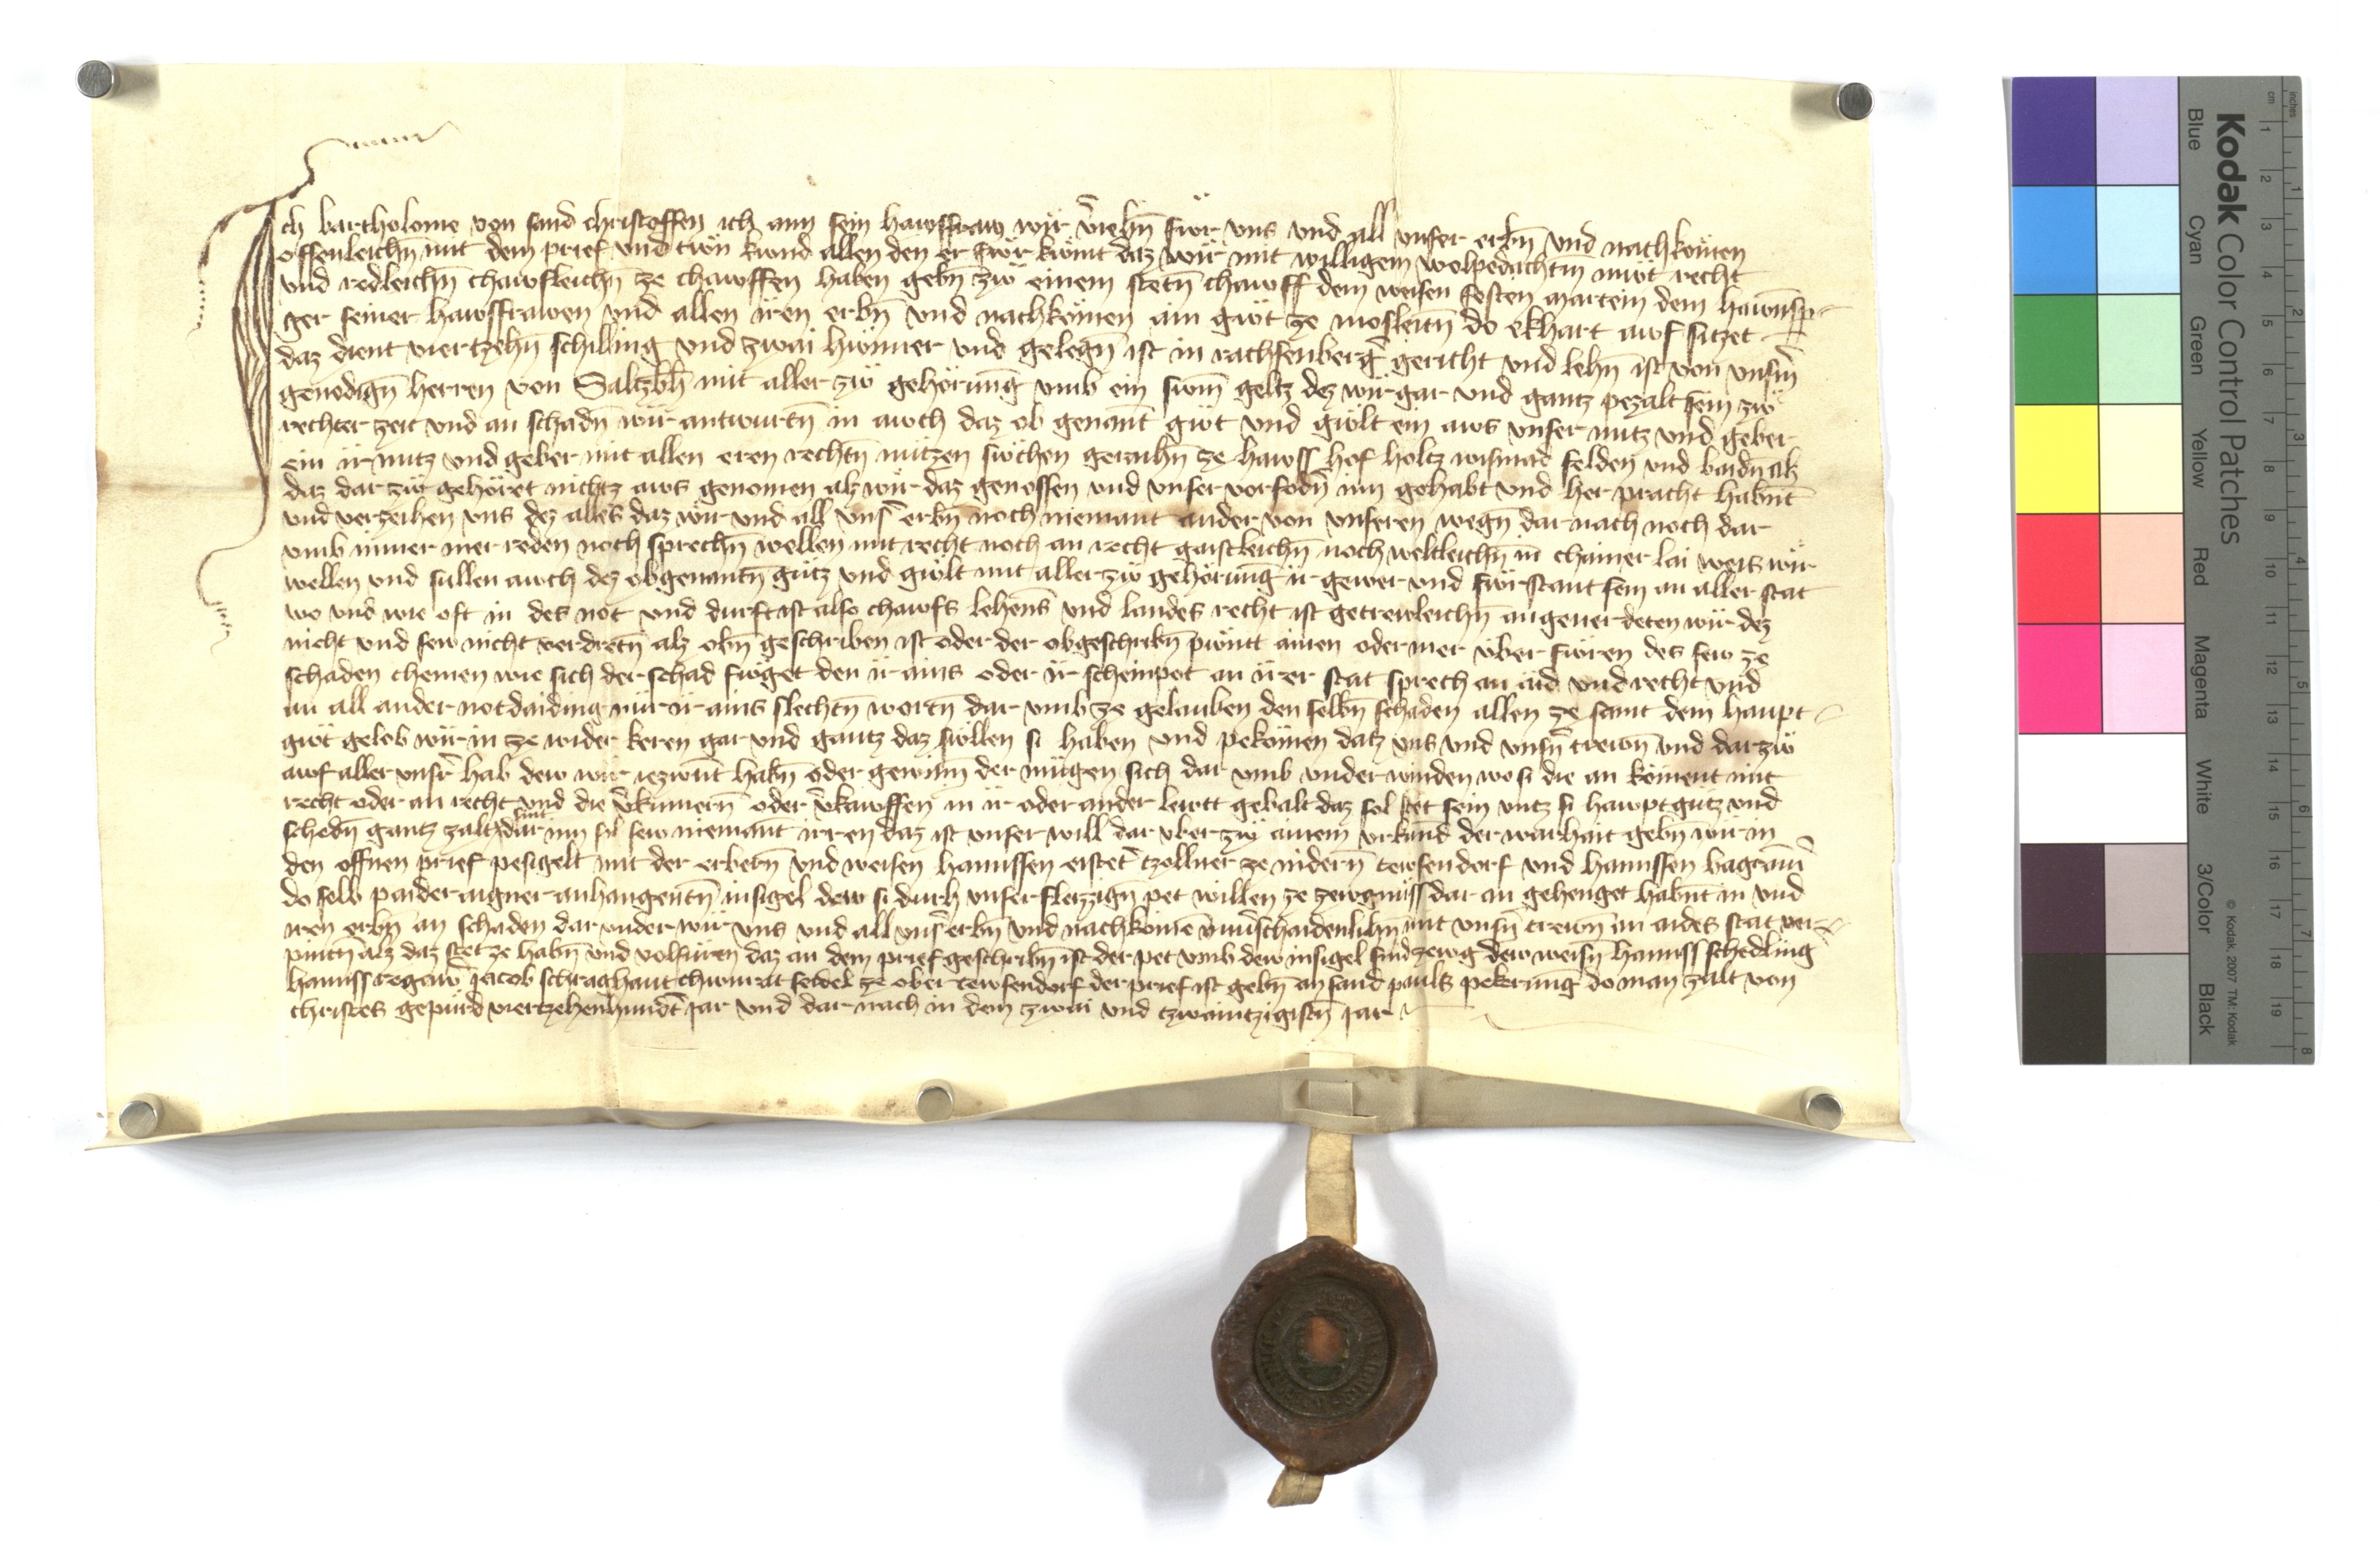 Ich bartholome von sand christoffen ich ann sein hawsfraw wyr v̄iehn̄ fwr vns vnd all vnser erbn̄ vnd nachkömen
offenleichn̄ mit dem prief vnd twn kund allen den er fwr kwmt daz wür mit willigem wolpedachtm̄ muöt recht
vnd redleichn̄ chawfleichn̄ ze chawffen haben gebn̄ zwo einem stetn̄ chawff dem weisen festen martein dem
ger seiner hawsfrawen vnd allen iren erbn̄ vnd nachkömen ain gwöt ze mosleitn̄ do ekhart awf sitzet
daz dient viertzehn̄ schilling vnd zwai hwnner vnd gelegn̄ ist in rachsenberg̓ gericht vnd lehn̄ ist von vnsm̄
genedign̄ herren von Saltzbh̄ mit aller zwö gehörunḡ vmb ein swm̄ geltz dez wür gar vnd gantz pezalt sein zwö
rechter zeit vnd an schadn̄ wür antwurtn̄ in awch daz ob genant gwöt vnd gwölt ein aws vnser nutz vnd geber
ein ir nutz vnd geber mit allen eren rechtn̄ nützen swöchen geraihn̄ ze hawss hof holtz wismad felden vnd baidn̄ alz
daz dar zwö gehöret nichtz aws genomen alz wür daz genossen vnd vnser vorfodn̄ inn gehabt vnd her pracht habnt
vnd verzeihen vns dez alles daz wür vnd all vns̄ erbn̄ noch niemant ander von vnseren wegn̄ dar nach noch dar
vmb immer mer reden noch sprechn̄ wellen mit recht noch an recht gaistleichn̄ noch weltleichn̄ in chainer lai weis wür
wellen vnd sullen awch dez obgenantn̄ gütz vnd gwölt mit aller zwö gehörunḡ ir gewer vnd fwrstant sein an aller stat
wo vnd wie oft in des not vnd durft ist also chawfs lehens vnd landes recht ist getrewleichn̄ angeuer deten wür dez
nicht vnd sew nicht verdretn̄ alz obn̄ geschriben ist oder der obgeschribn̄ pwntt ainen oder mer über fwren des sew ze
schaden chemen wie sich der schad fwöget den ir ains oder ir scheinpot an irer stat sprech an aid vnd recht vnd
an all ander notdaiding nür ir ains slechtn̄ wortn̄ dar vmb ze gelauben den selbn̄ schaden allen ze samt dem haupt
gwöt gelob wür in ze wider keren gar vnd gantz daz swöllen si haben vnd pekömen datz vns vnd vnsn̄ trewn̄ vnd dar zwö
awf aller vnsr̄ hab dew wür iezwnt habn̄ oder gewinn̄ der mügen sich dar vmb vnder winden wo si die an köment mit
recht oder an recht vnd die v̄kümern̄ oder v̄kawffen in ir oder ander lewtt gebalt daz sol stet sein vntz si hawptgütz vnd
schedn̄ gantz zalt sint dar inn sol sew niemant irren daz ist vnser will dar vber zwo ainem vrkund der warhait gebn̄ wür in
den offnen prief pesigelt mit der erbern̄ vnd weisen hannssen tzollner ze nidern̄ tewsendorf vnd hannssen
do selb paider aigner anhangentn̄ insigel dew si durh vnser fleizign̄ pet willen ze zewgnüss dar an gehenget habnt in vnd
iren erbn̄ an schaden dar vnder wür vns vnd all vns̄ erbn̄ vnd nachköme mit vnsn̄ trewn̄ an aides stat ver
pintn̄ alz daz stet ze habn̄ vnd volfüren daz an dem prief geschribn̄ ist der pet vmb dew insigel sind zewg dew weisn̄ hannss schedling
hannss Jacob ze ober tewsendorf der prief ist gebn̄ an sand pauls pekerunḡ do man zalt von
christes gepürd viertzehenhundt̄ Jar vnd dar nach in dem zwai vnd tzwaintzigistn̄ Jar
Kodak Color Control Patches
Blue Cyan Green Yellow Red Magenta White 3/Color Black
© Kodak, 2007 TM: Kodak
inches 1 2 3 4 5 6 7 8
cm 1 2 3 4 5 6 7 8 9 10 11 12 13 14 15 16 17 18 19